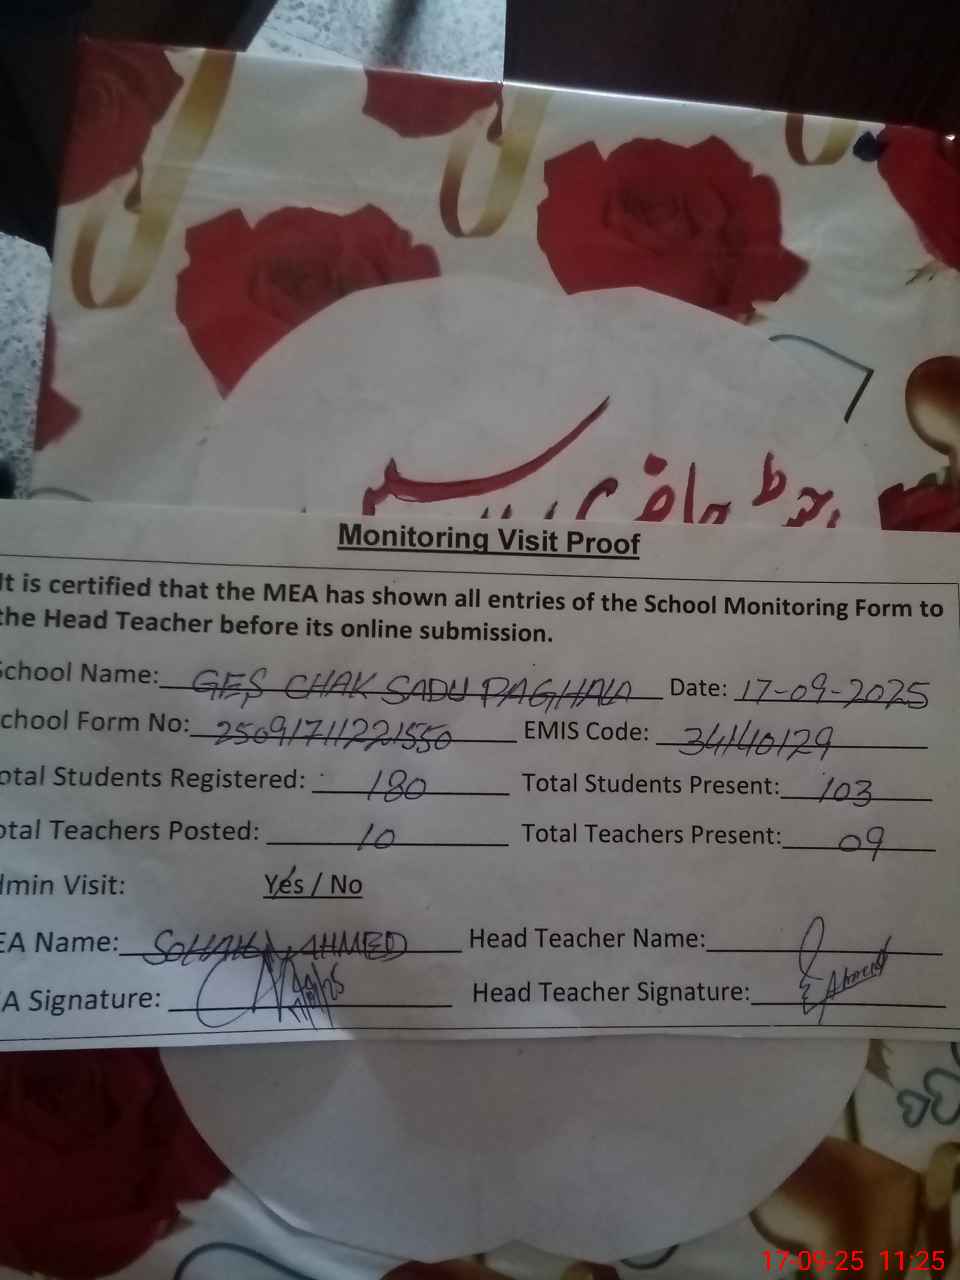 رجسٹر حاضری
Monitoring Visit Proof
It is certified that the MEA has shown all entries of the School Monitoring Form to
the Head Teacher before its online submission.
School Name: GES CHAK SADU PAGHALA Date: 17-09-2025
chool Form No: 25091711221550 EMIS Code: 34140129
otal Students Registered: 180 Total Students Present: 103
otal Teachers Posted: 10 Total Teachers Present: 09
dmin Visit: Yes / No
EA Name: SOHAIL AHMED Head Teacher Name:
A Signature: Head Teacher Signature:
17-09-25 11:25